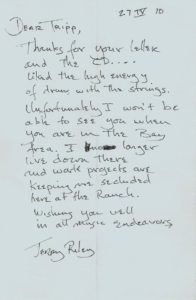 27 IV 10
Dear Tripp,
Thanks for your letter
and the CD....
liked the high energy
of drum with the strings.
Unfortunately I won't be
able to see you when
you are in The Bay
Area. I no larger
live down there
and work projects are
keeping me secluded
here at the Ranch.
Wishing you well
in all music Endeavors
Terry Riley